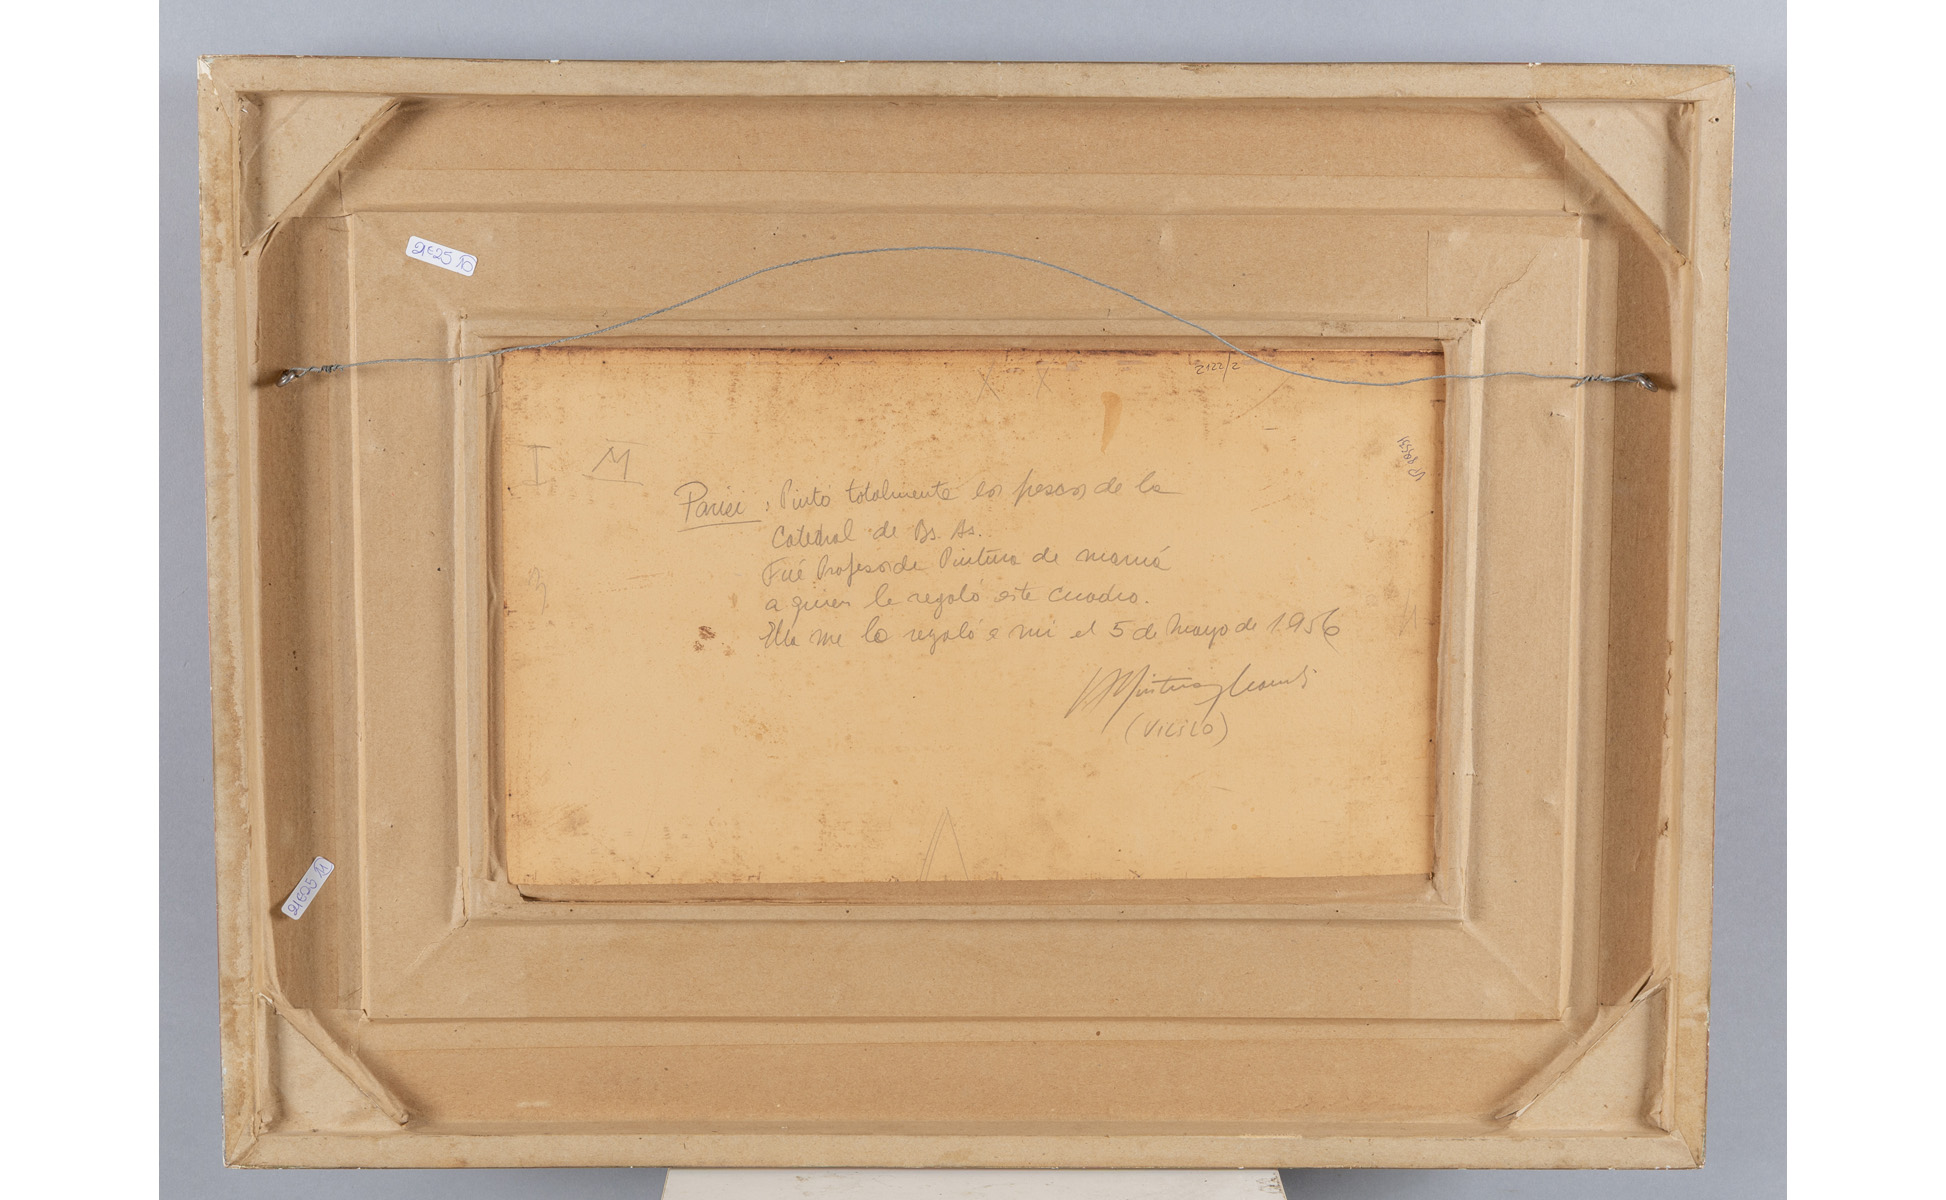 21E25 10
2122/2
I M
Parisi: Pintó totalmente los frescos de la
Catedral de Bs. As.
Fué Profesor de Pintura de mamá
a quien le regaló este cuadro.
Ella me lo regaló a mi el 5 de Mayo de 1956
(VICILO)
21E25 11